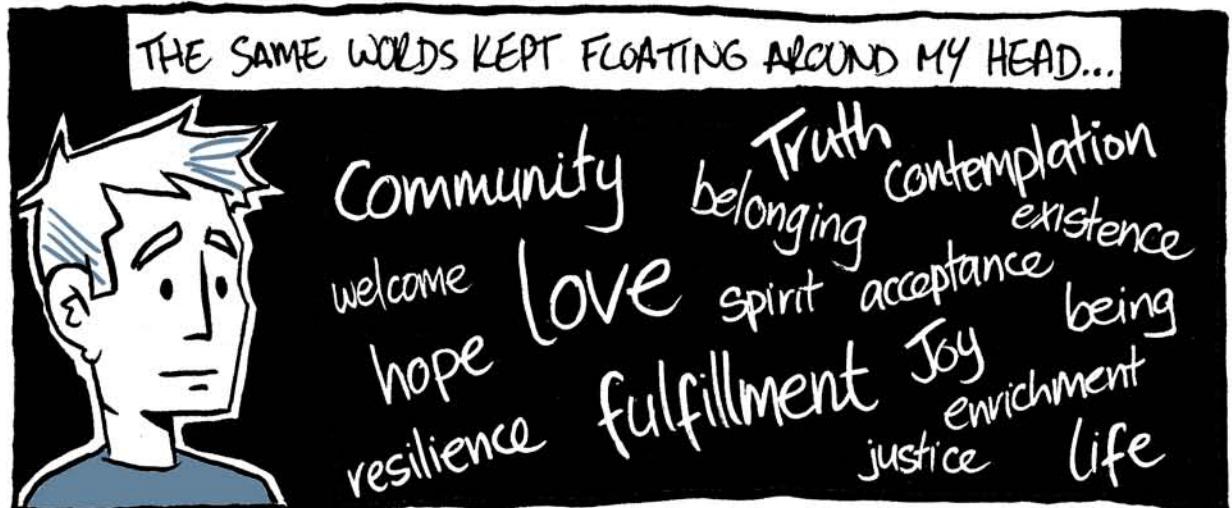 THE SAME WORDS KEPT FLOATING AROUND MY HEAD...
Community
Truth
belonging
contemplation
existence
welcome
love
spirit
acceptance
being
hope
fulfillment
Joy
enrichment
resilience
justice
life